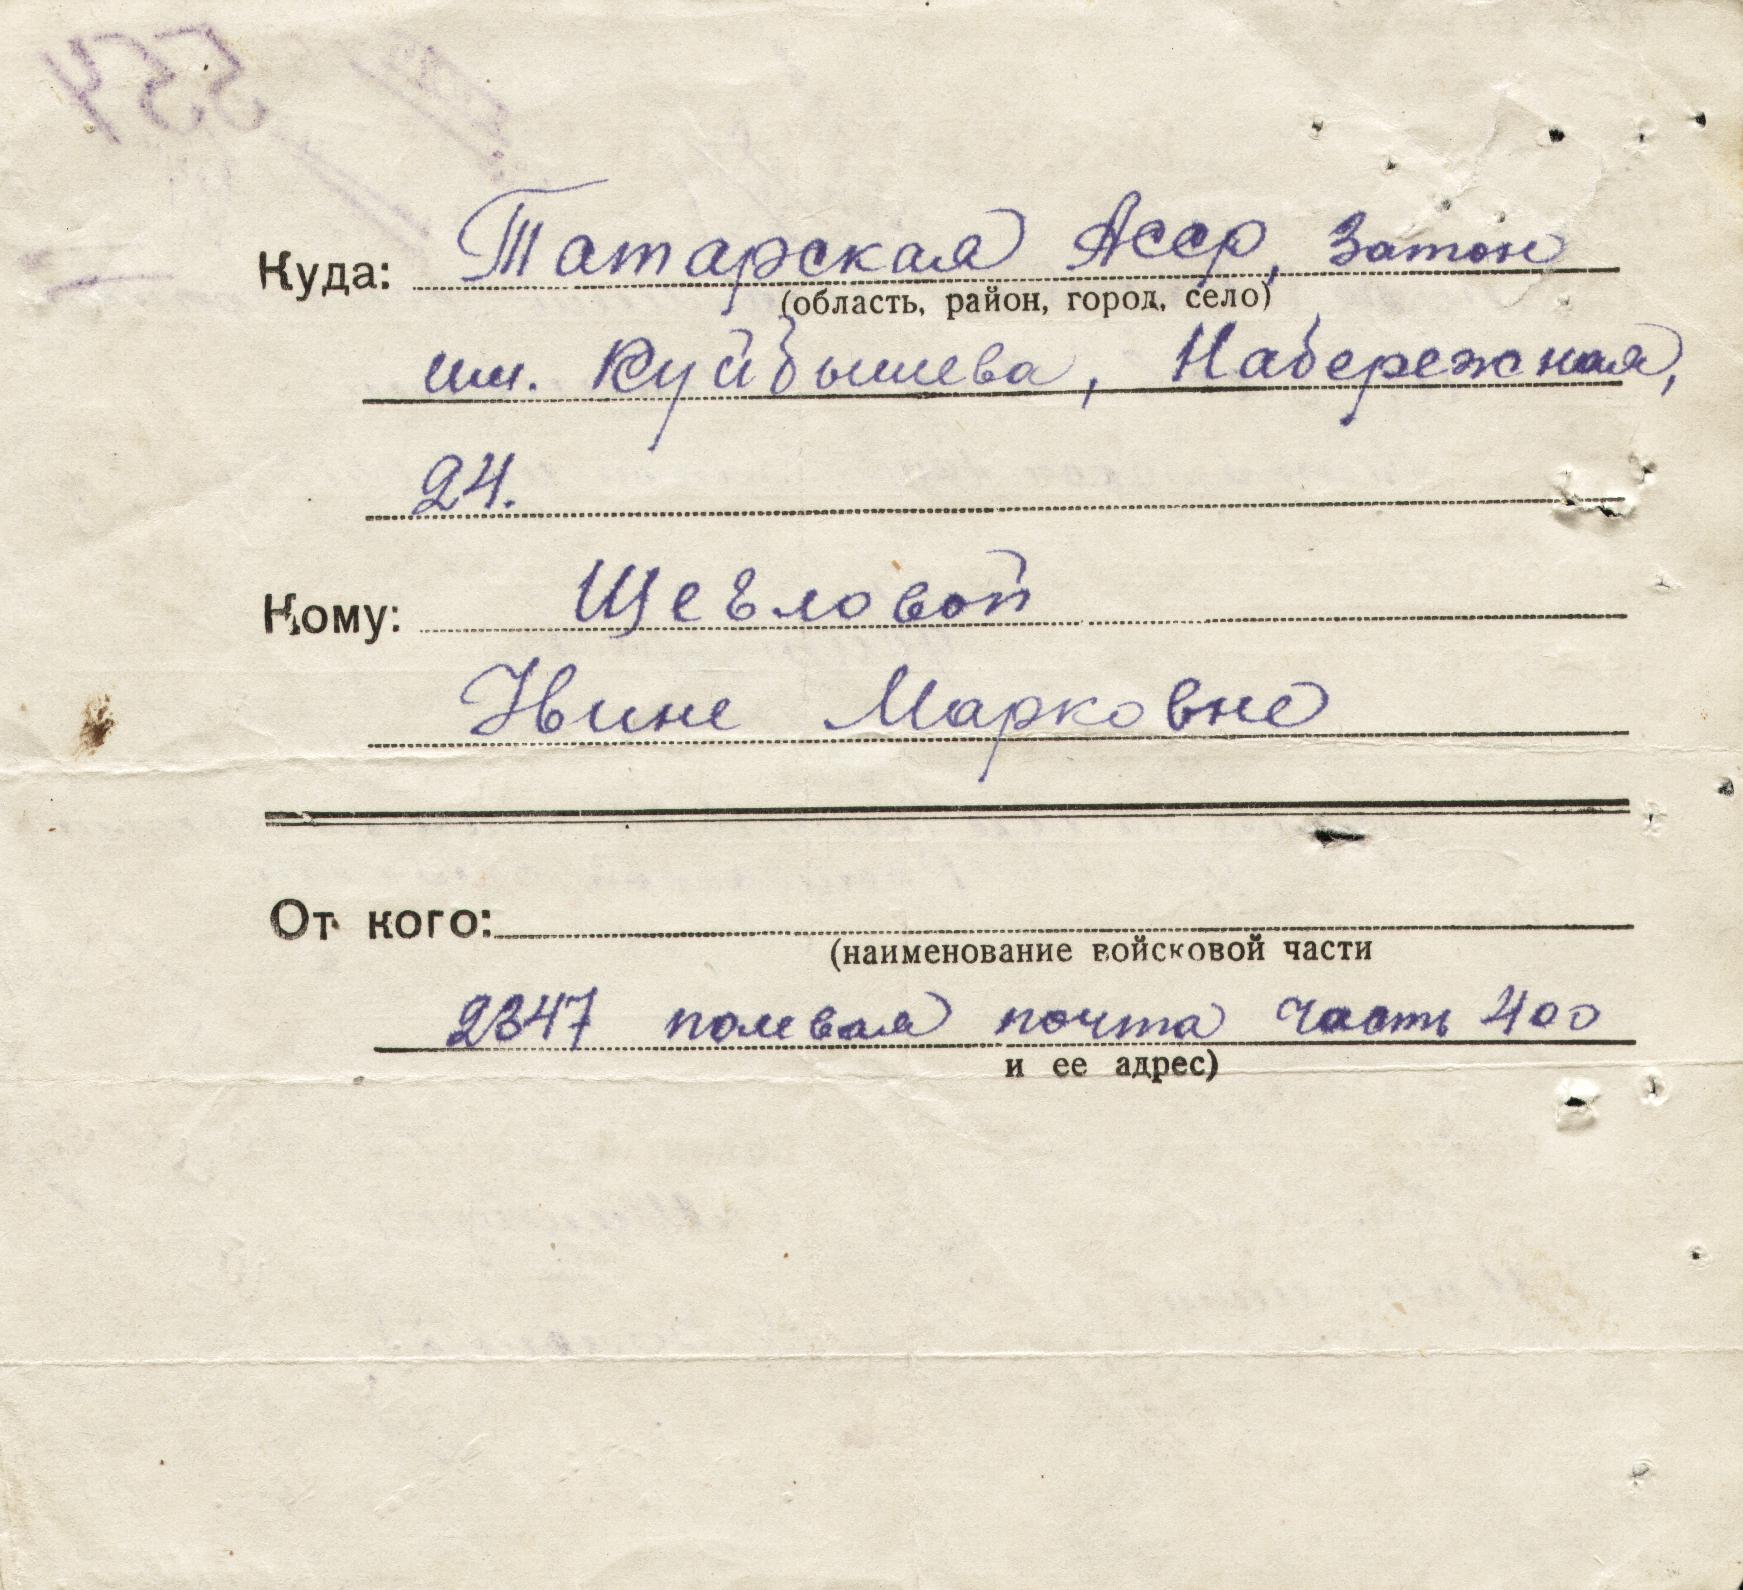 Куда: Татарская Асср, Затон
(область, район, город, село)
им. Куйбышева, Набережная,
24.
Кому: Щегловой
Нине Марковне
От кого:
(наименование войсковой части
2347 полевая почта часть 400
и ее адрес)
554